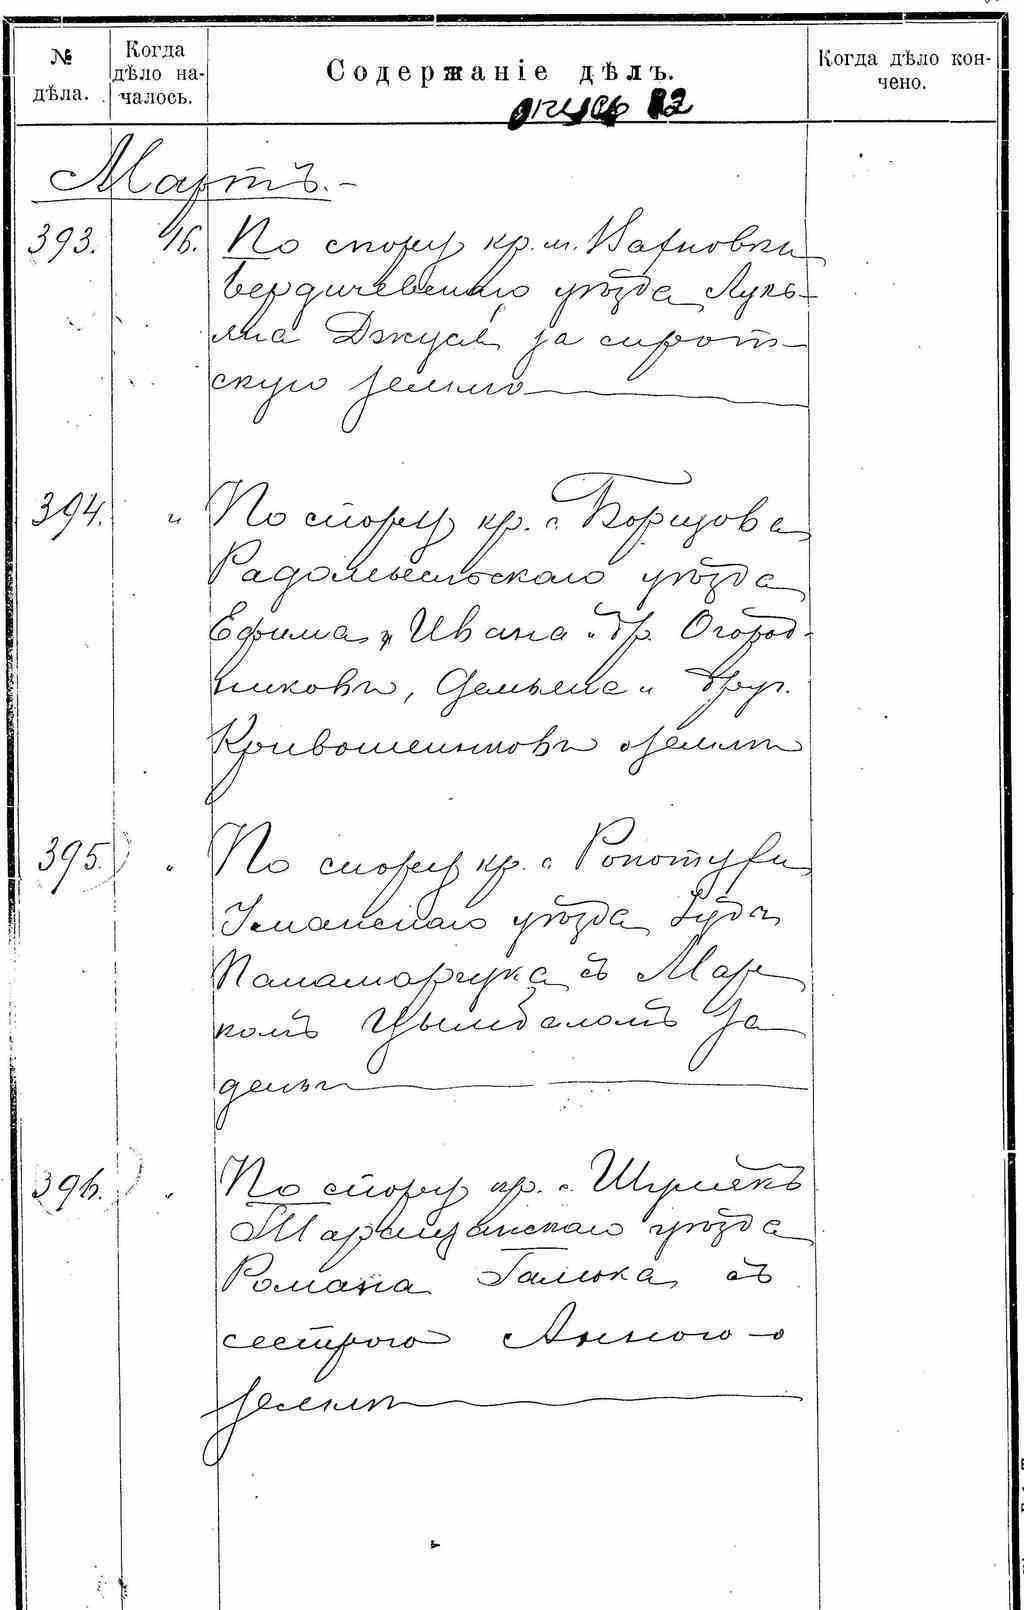 № дѣла.
Когда дѣло на-
чалось.
Содержаніе дѣлъ.
Когда дѣло кон-
чено.
опись 12
Мартъ.-
393. 16. По спору кр. м.
Бердичевскаго уѣзда Лукь-
яна Джуся за сирот-
скую землю
394. " По спору кр. с. Борщова
Радомысльскаго уѣзда
Ефима, Ивана и др. Огород-
никовы, Демьяна и друг.
Кривошеиновы о земли
395. " По спору кр. с. Ропотухи
Уманскаго уѣзда
Паламарчука съ Мар
комъ Цымбаломъ за
деньги
396. " По спору кр. с.
Таращанскаго уѣзда
Романа съ
сестрою Анною о
земли